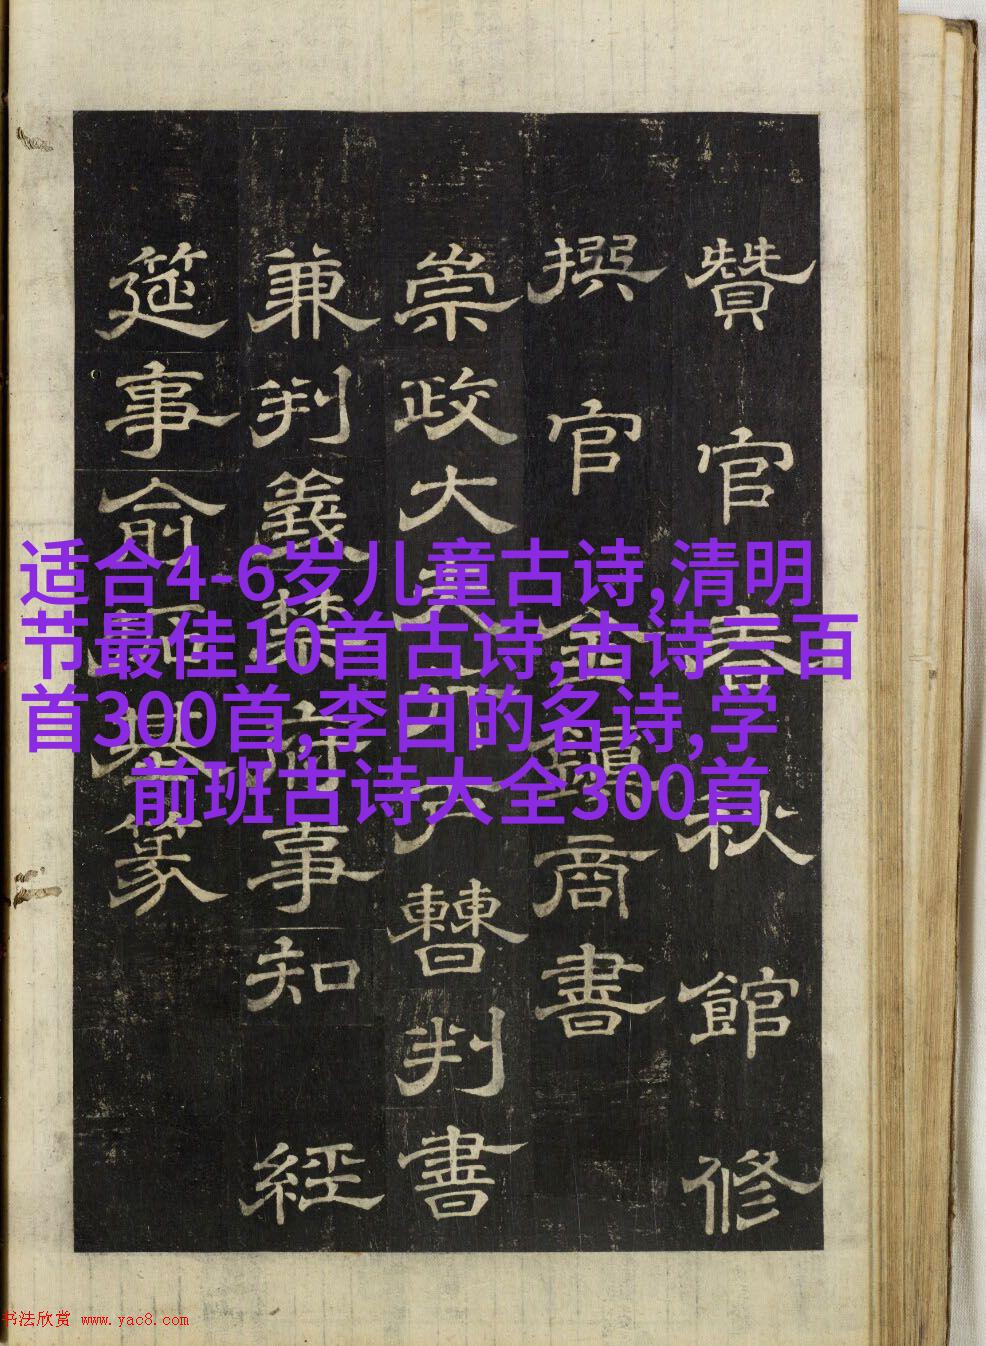 贊官春秋館修
撰官金鎮商書
崇政大夫行戶曹判書
兼判義禁府事知經
筵事俞拓基篆
适合4-6岁儿童古诗,清明
节最佳10首古诗,古诗三百
首300首,李白的名诗,学
前班古诗大全300首
书法欣赏 www.yac8.com